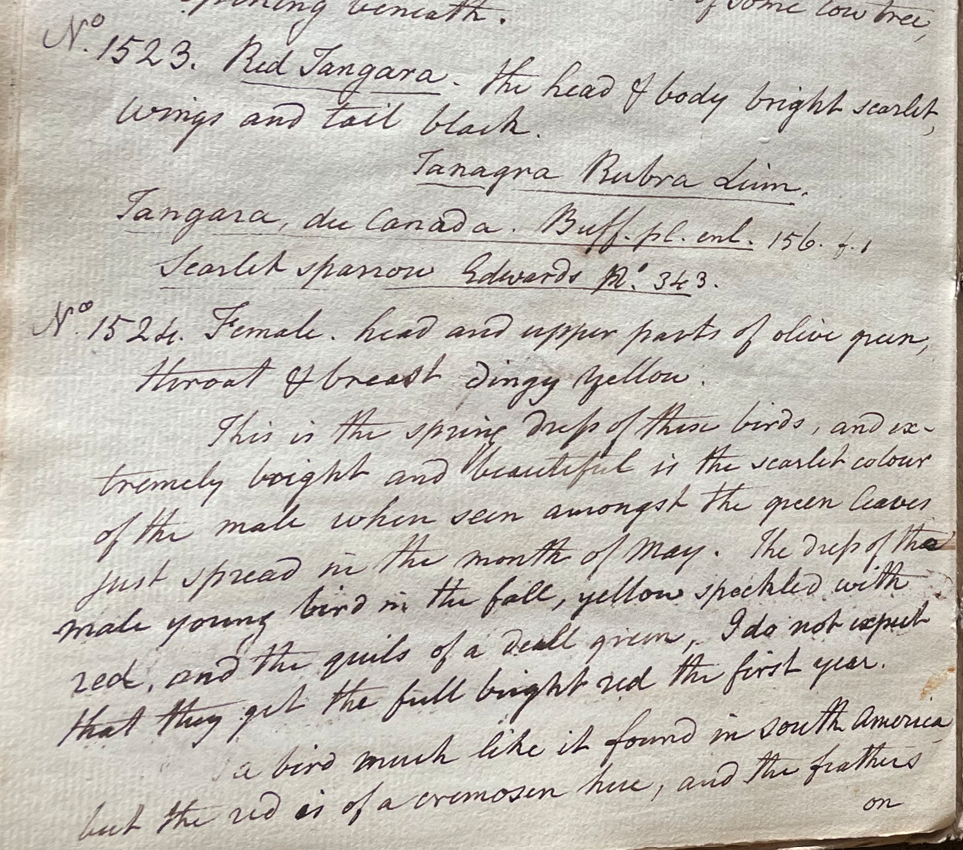 beneath. of some low tree,
No. 1523. Red Tangara. the head & body bright scarlet,
wings and tail black.
Tanagra Rubra Linn.
Tangara, du Canada. Buff. pl. enl. 156. f. 1
Scarlet sparrow Edwards Pl. 343.
No. 1524. Female. head and upper parts of olive green,
throat & breast dingy yellow.
This is the spring dreſs of these birds, and ex-
tremely bright and beautiful is the scarlet colour
of the male when seen amongst the green leaves
just spread in the month of May. The dreſs of the
male young bird in the fall, yellow speckled with
red, and the quils of a dull green, I do not expect
that they get the full bright red the first year.
a bird much like it found in South America
but the red is of a cremosen hue, and the feathers
on